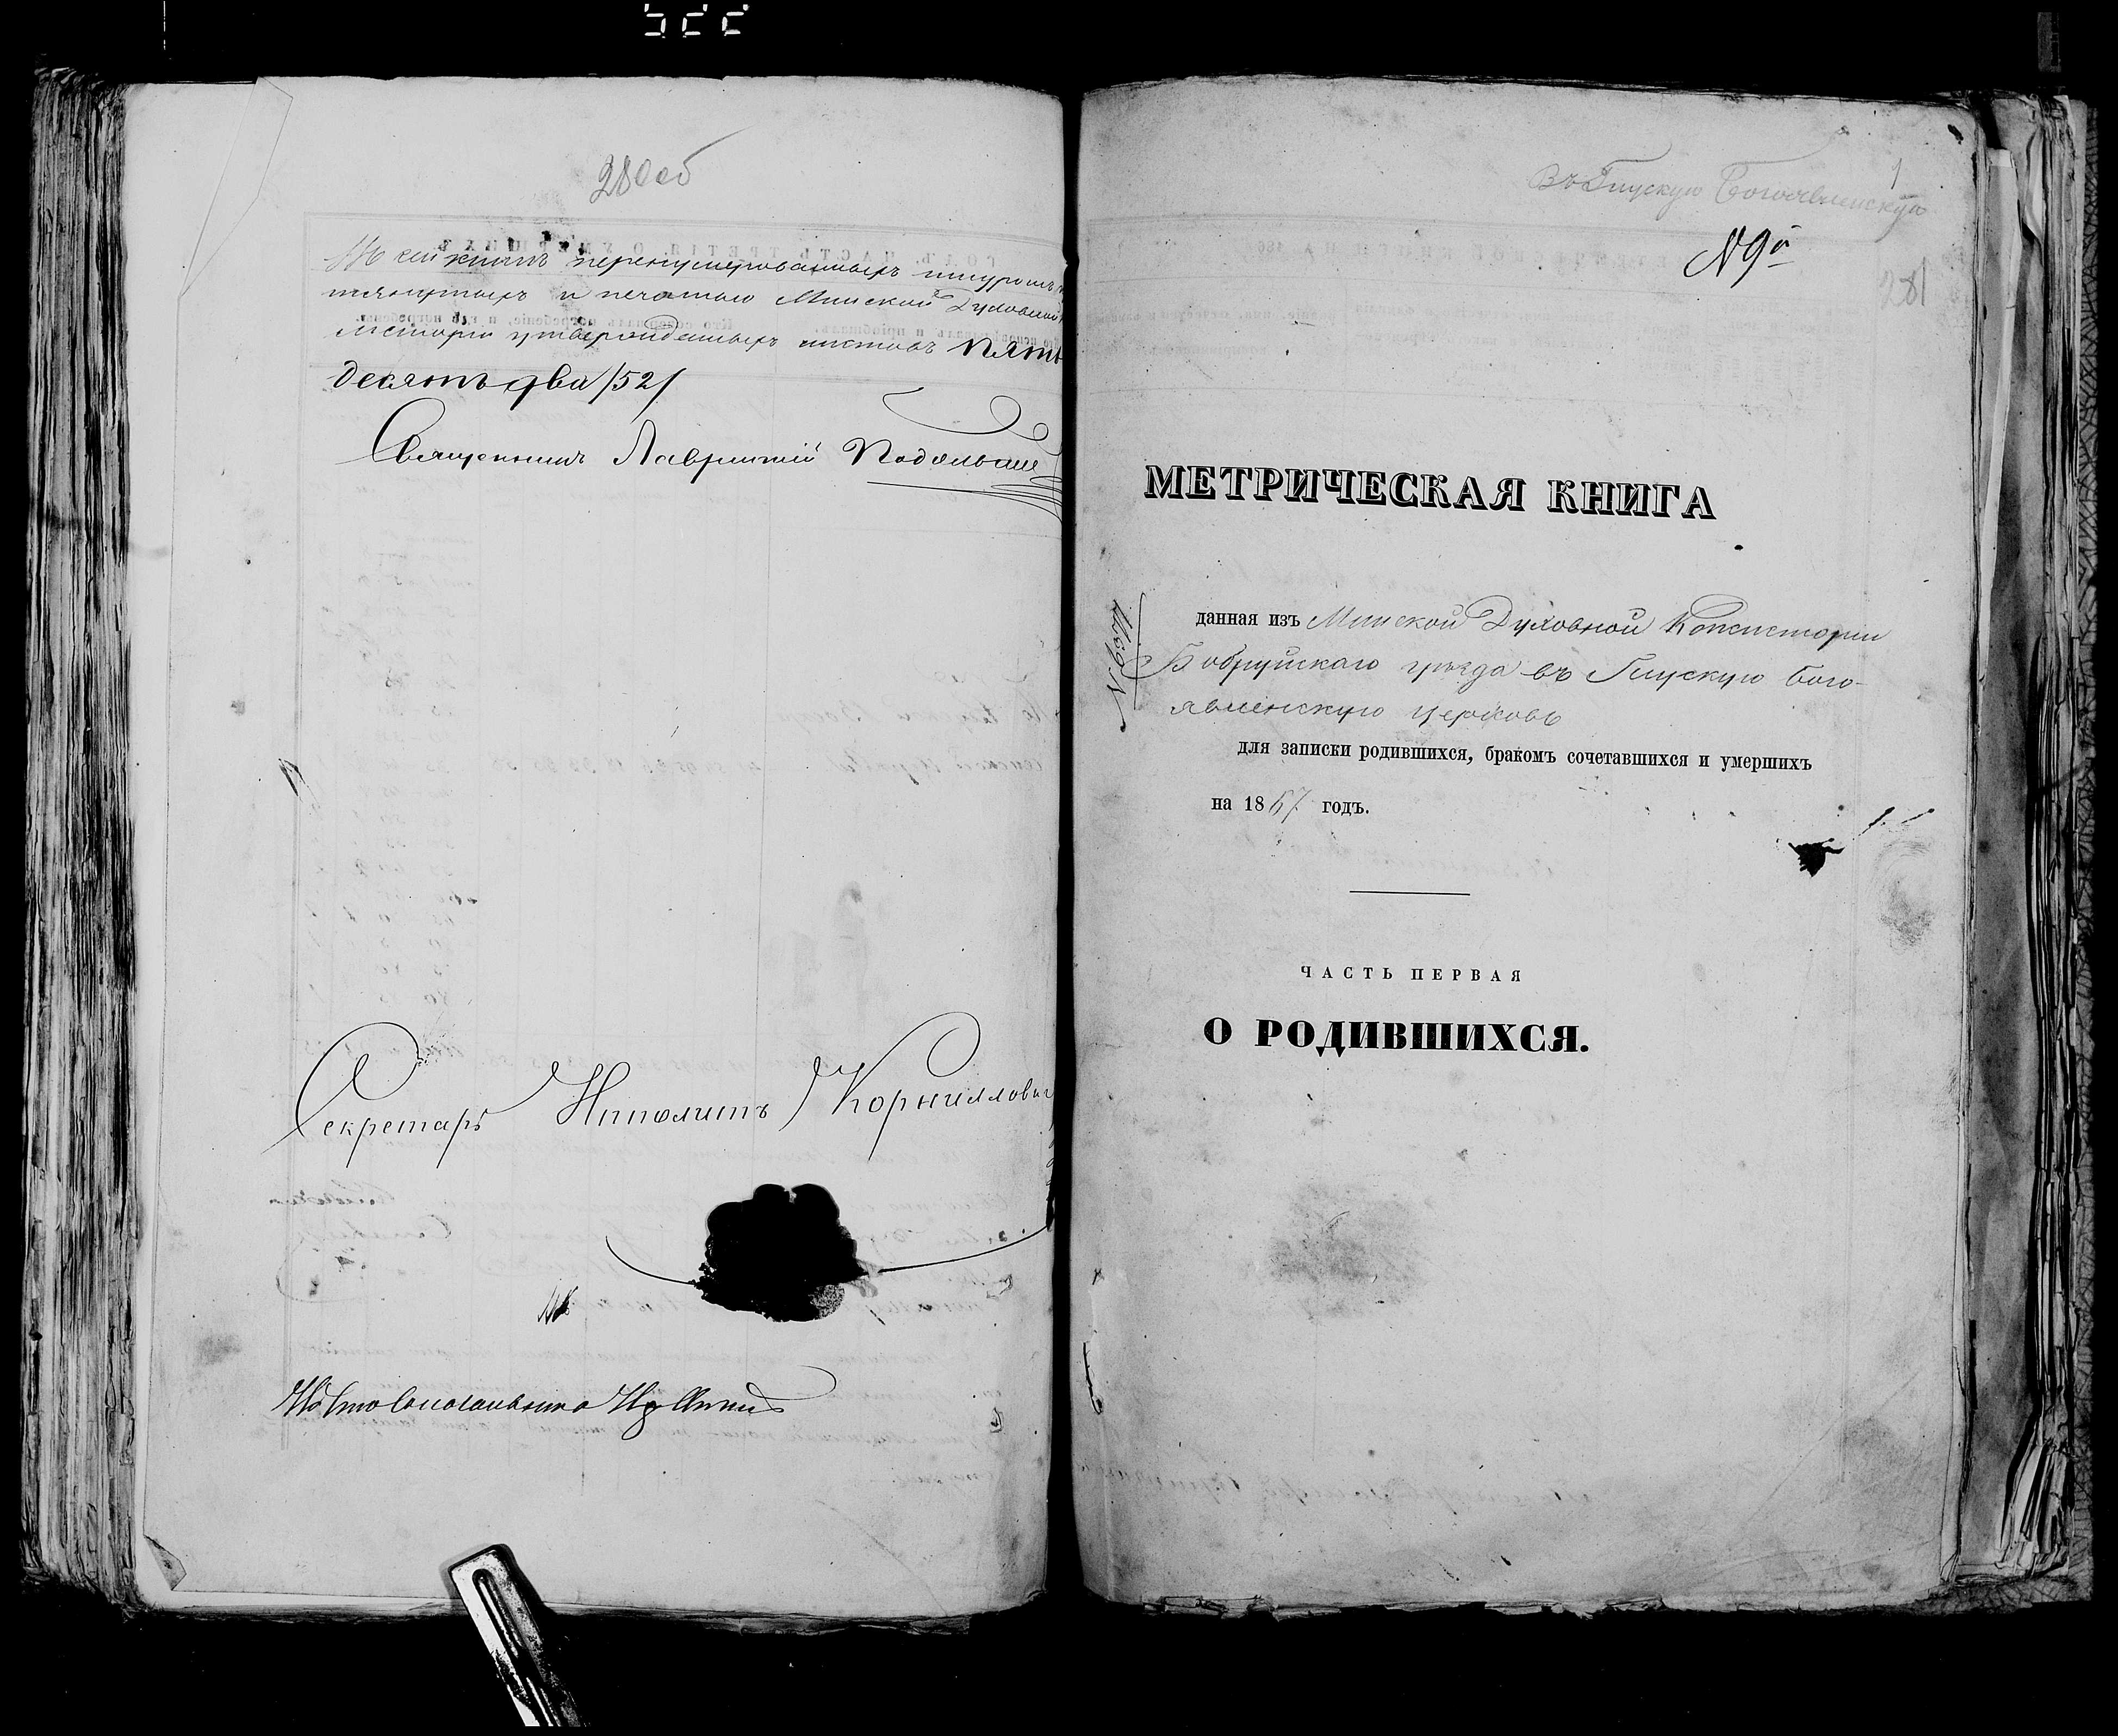 280об
Въ сей книгѣ перенумерованныхъ шнуромъ
тянутыхъ и печатью Минской Духовной
систоріи утвержденныхъ листовъ Пять
десятъ два /52/
Священникъ Лаврентій Подольскі
Секретарь Ипполитъ Корниллович
1
Въ Глускую Богоявленскую
N 9й
281
МЕТРИЧЕСКАЯ КНИГА
данная изъ Минской Духовной Консисторіи
Бобруйскаго уѣзда въ Глускую Бого-
явленскую церковь
для записки родившихся, бракомъ сочетавшихся и умершихъ
на 1867 годъ.
ЧАСТЬ ПЕРВАЯ
О РОДИВШИХСЯ.